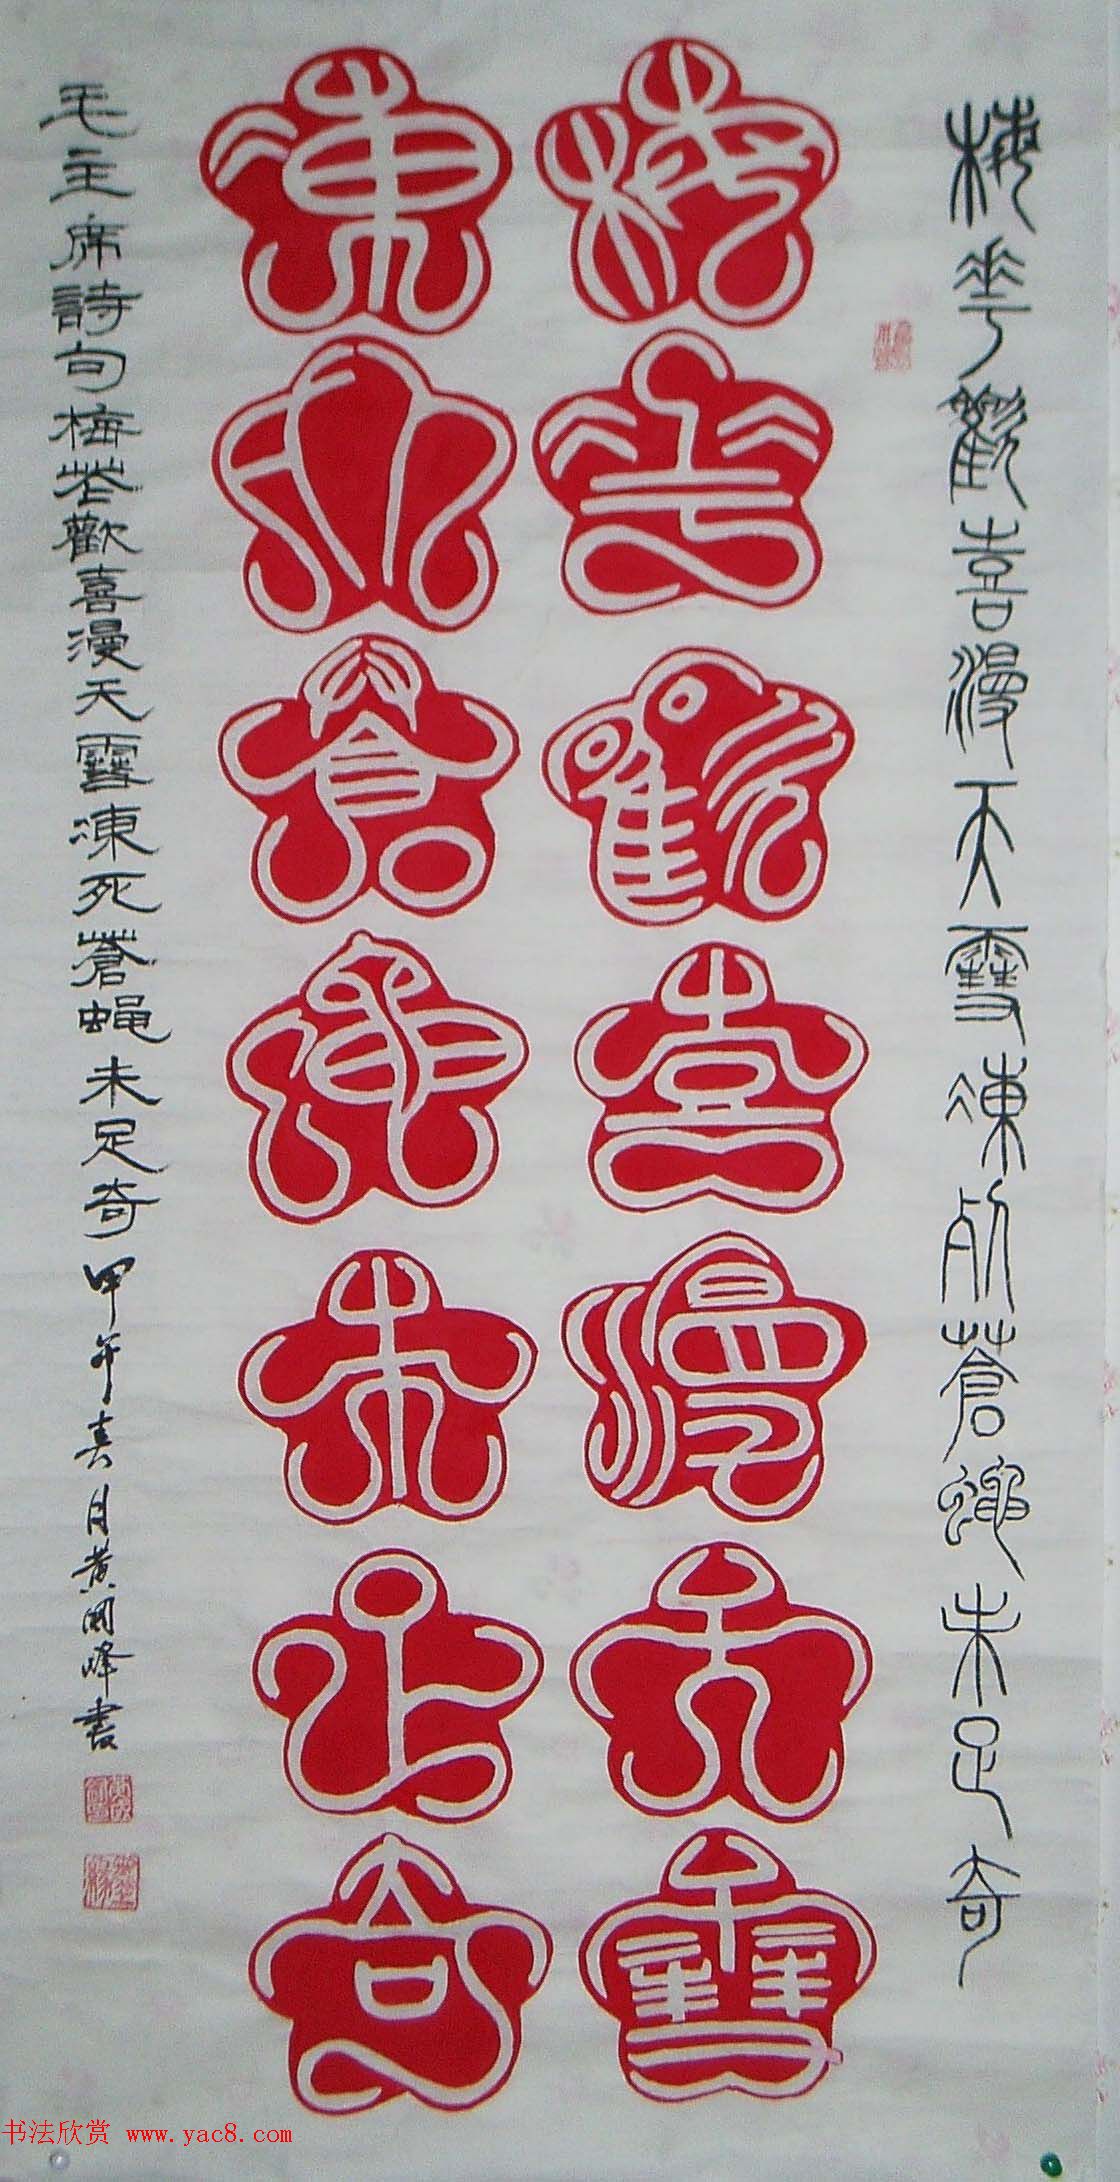 梅花歡喜漫天雪凍死蒼蠅未足奇
梅花歡喜漫天雪
凍死蒼蠅未足奇
毛主席詩句梅花歡喜漫天雪凍死蒼蝇未足奇甲午春月黄国峰書
书法欣赏 www.yac8.com